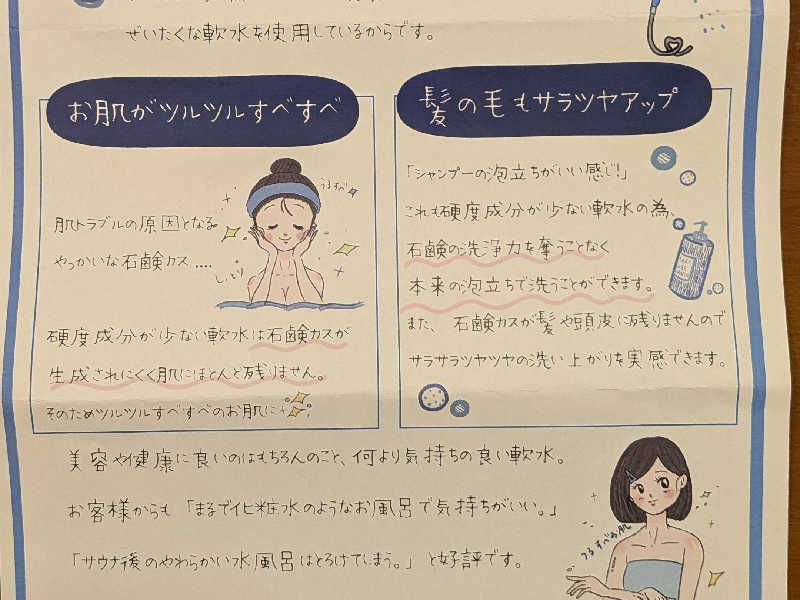 ぜいたくな軟水を使用しているからです。
お肌がツルツルすべすべ
うるすべ
肌トラブルの原因となる
やっかいな石鹸カス....
しっとり
硬度成分が少ない軟水は石鹸カスが
生成されにくく肌にほとんど残りません。
そのためツルツルすべすべのお肌に
髪の毛もサラツヤアップ
「シャンプーの泡立ちがいい感じ!」
これも硬度成分が少ない軟水の為、
石鹸の洗浄力を奪うことなく
本来の泡立ちで洗うことができます。
また、石鹸カスが髪や頭皮に残りませんので
サラサラツヤツヤの洗い上がりを実感できます。
美容や健康に良いのはもちろんのこと、何より気持ちの良い軟水。
お客様からも「まるで化粧水のようなお風呂で気持ちがいい。」
「サウナ後のやわらかい水風呂はとろけてしまう。」と好評です。
つるすべ肌